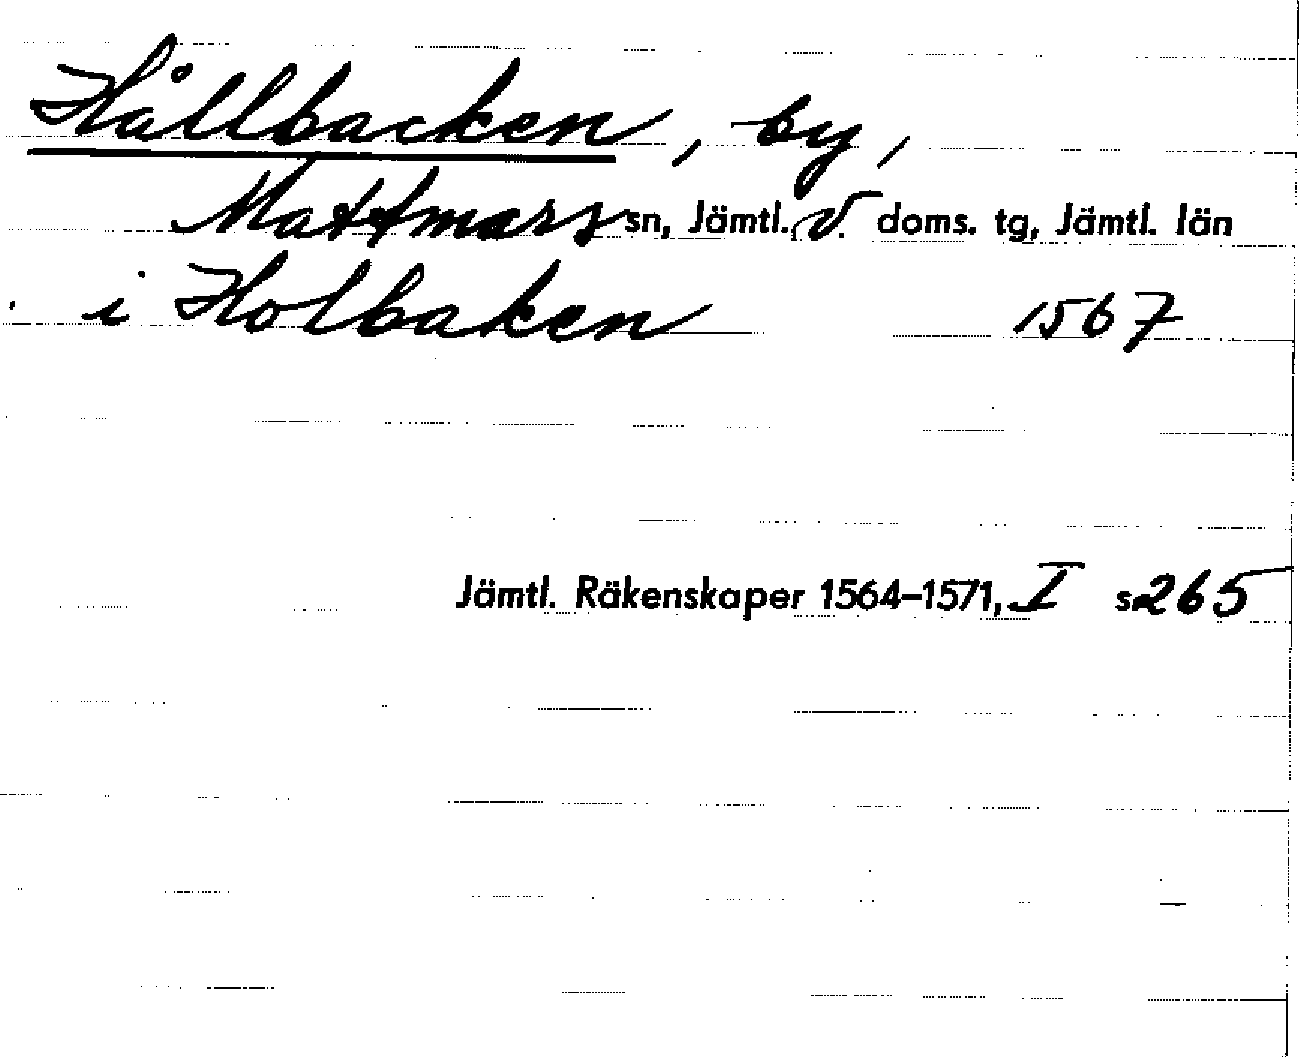 Hållbacken, by,
Mattmars sn, Jämtl. V. doms. tg, Jämtl. län
i Holbaken 1567
Jämtl. Räkenskaper 1564–1571, I s. 265